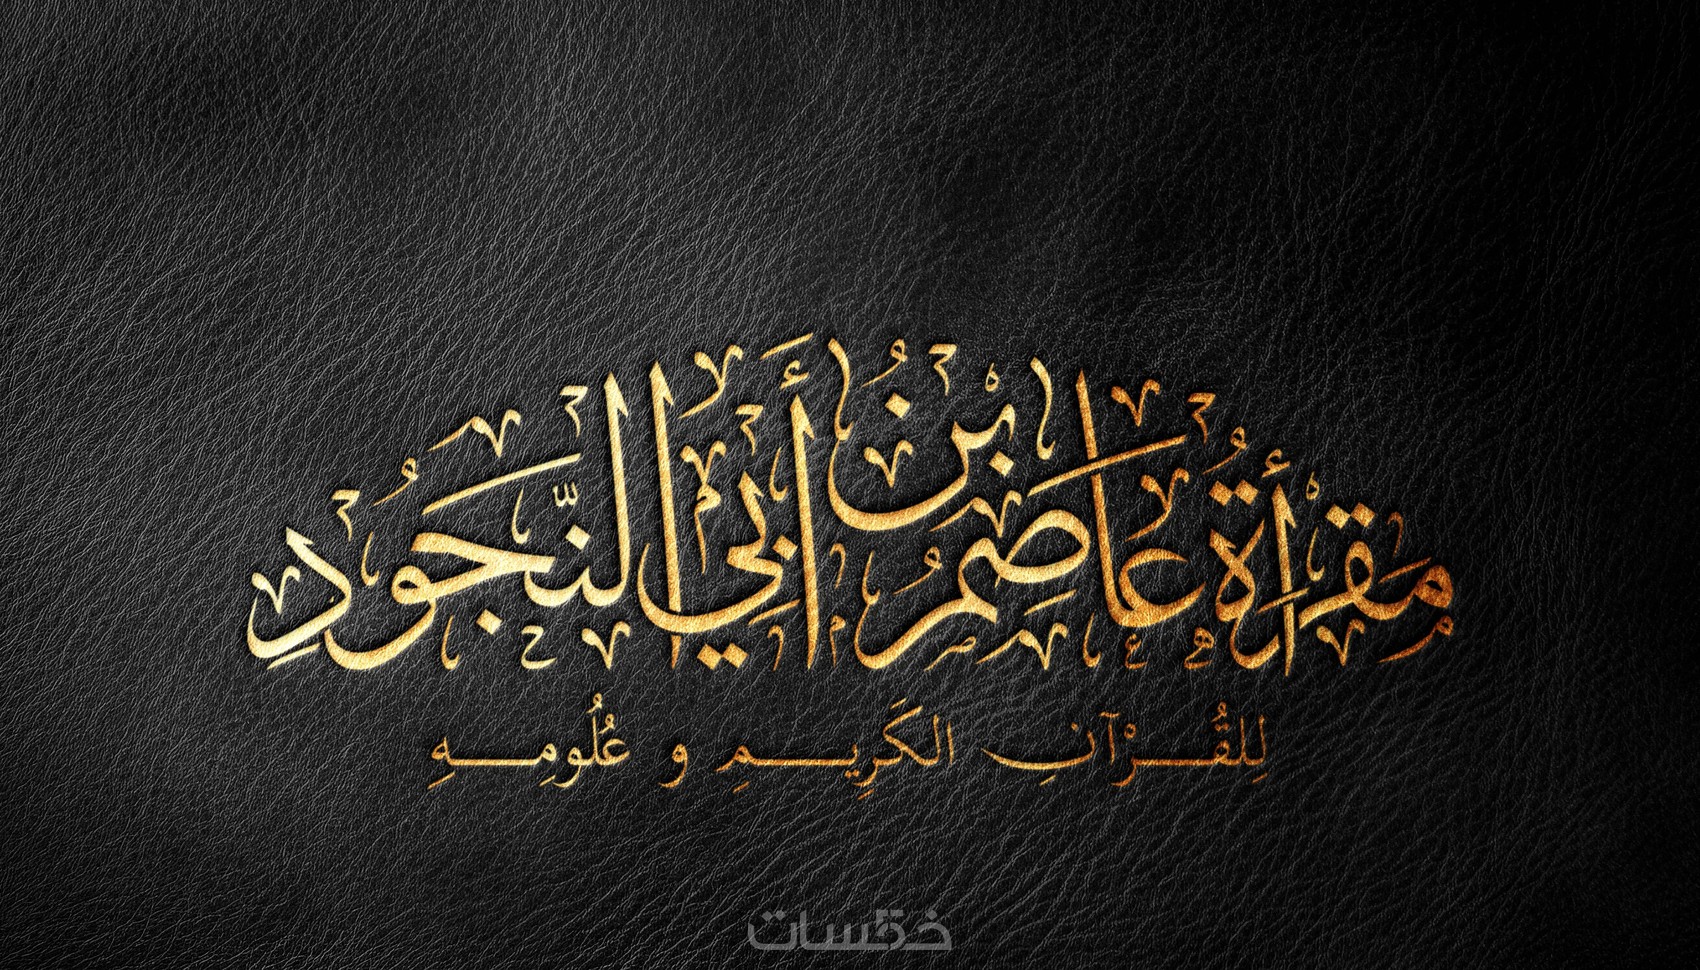 مَقرَأَةُ عَاصِمُ بنُ أَبِي النَّجُودِ
لِلقُرْآنِ الكَرِيمِ و عُلُومِهِ
خمسات